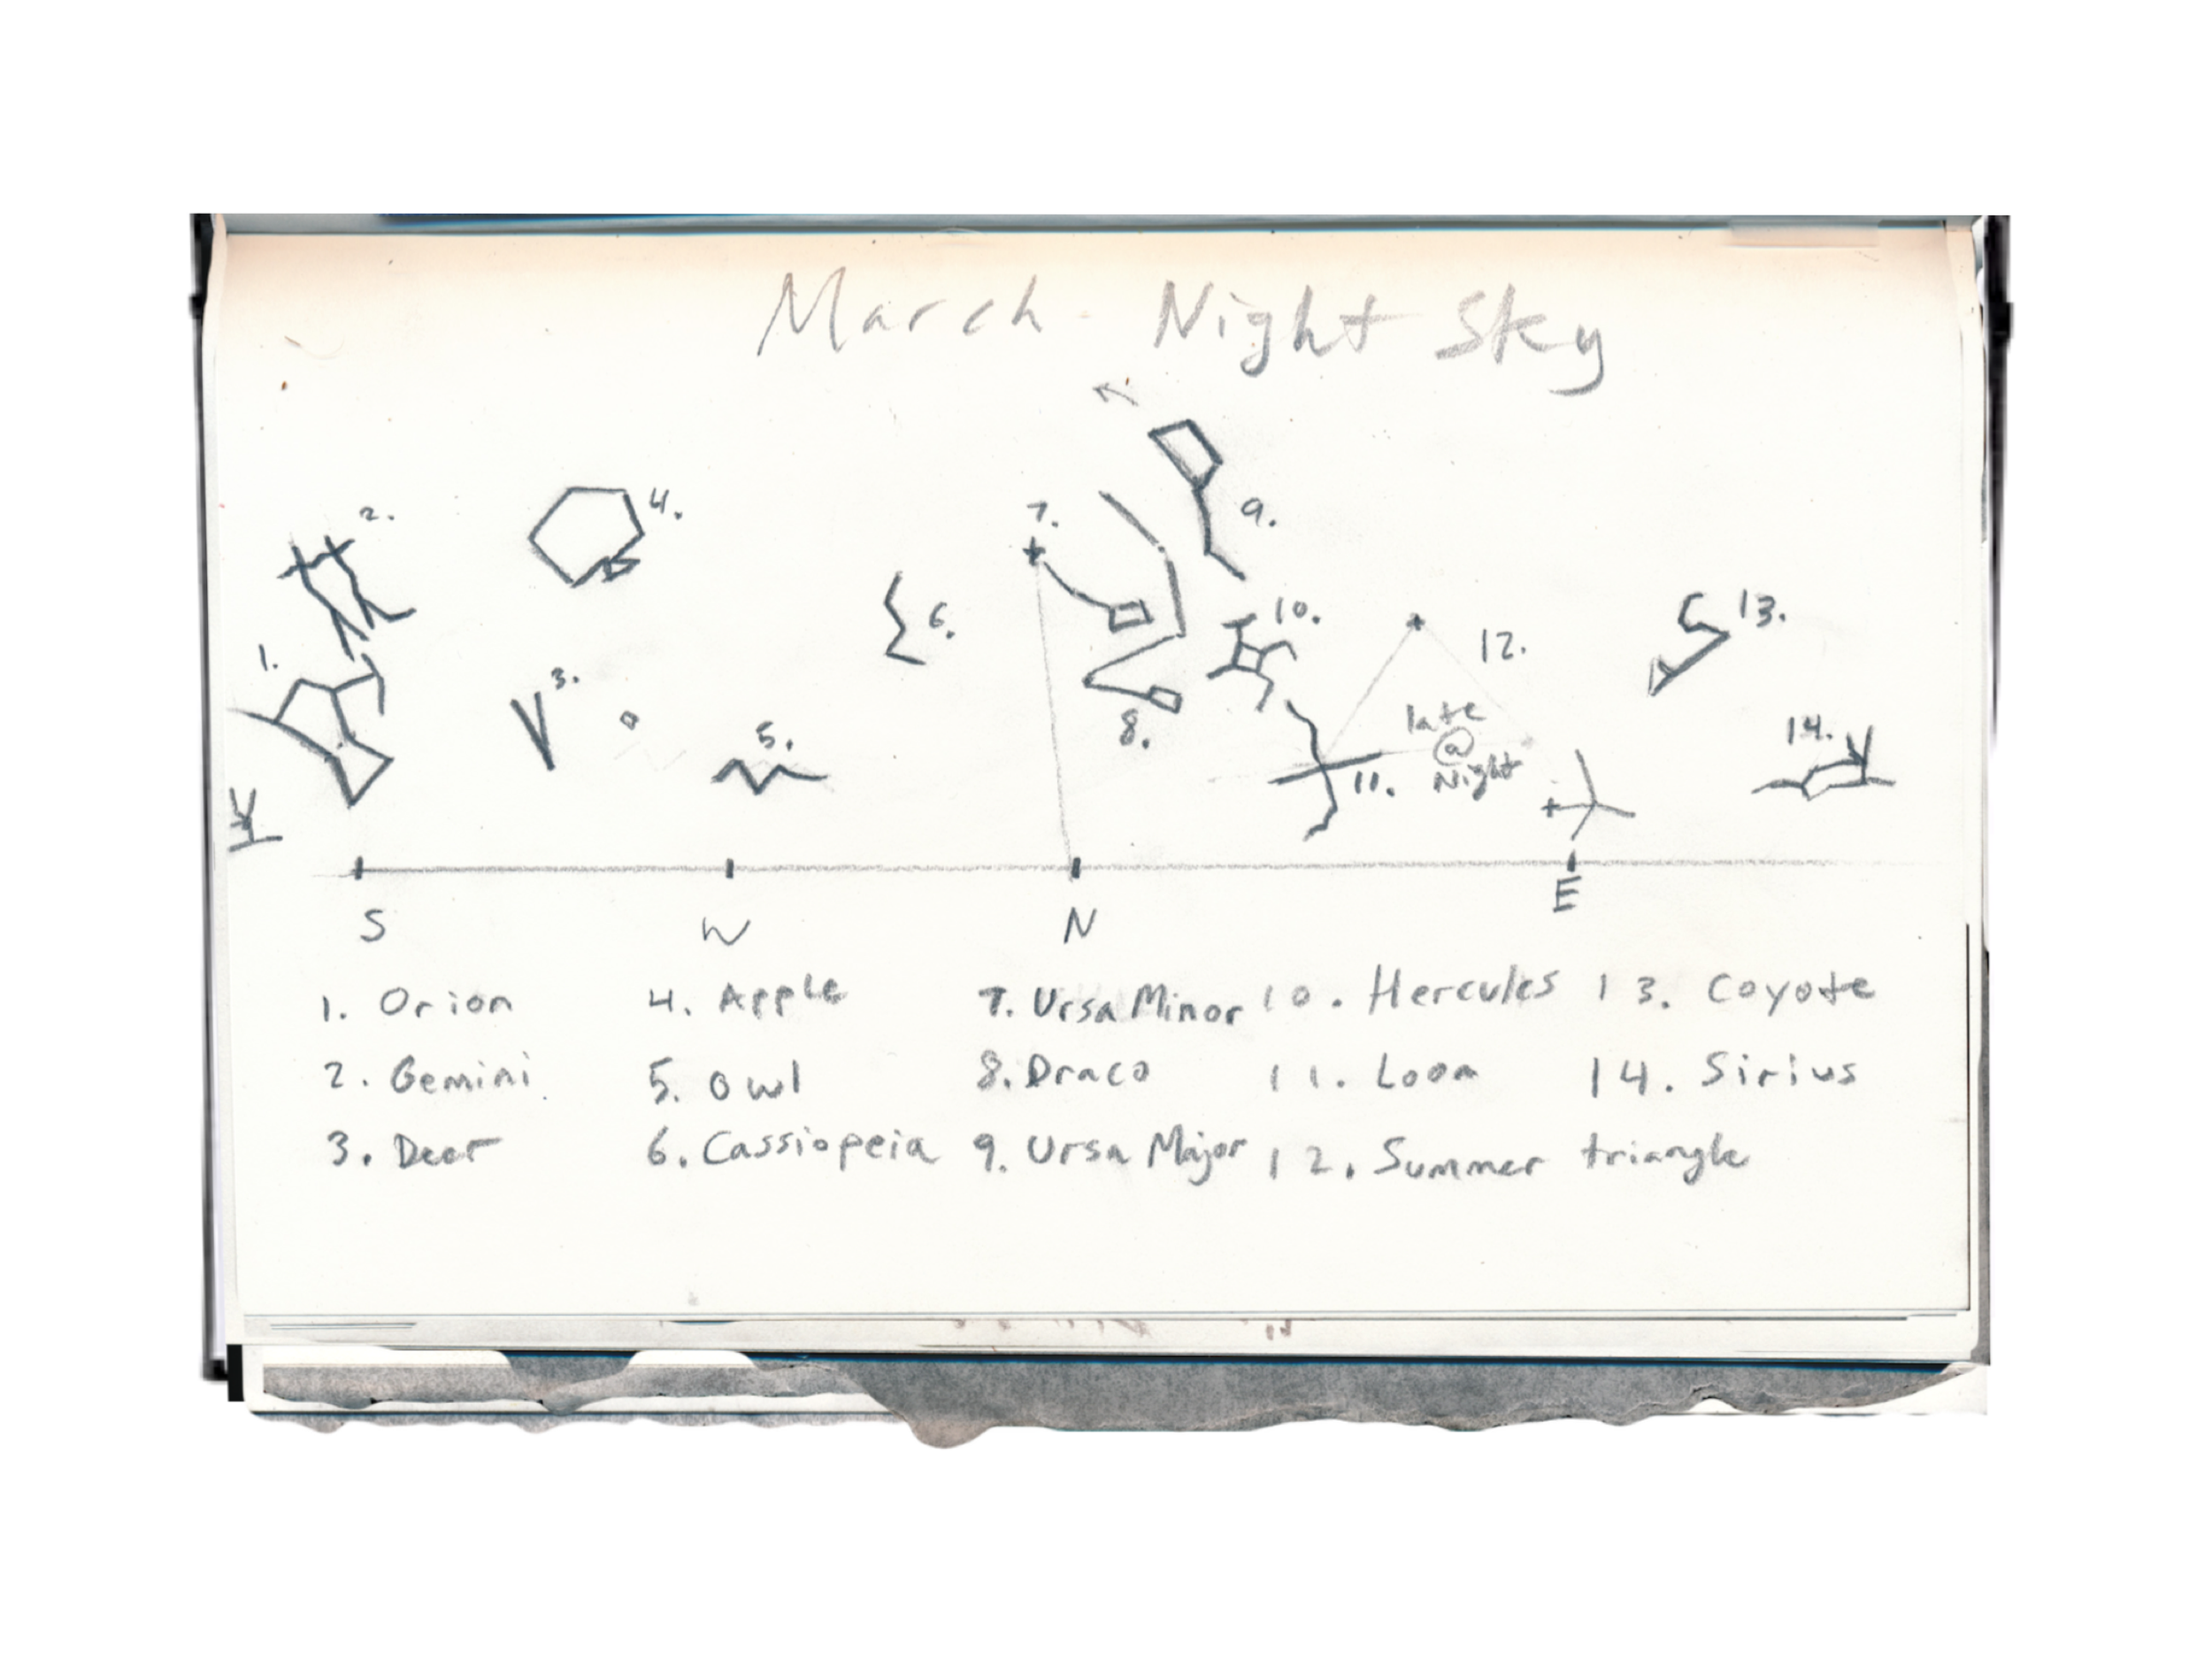 March Night Sky
2.
4.
7.
9.
1.
3.
6.
10.
12.
13.
5.
8.
late
@
Night
11.
14.
S W N E
1. Orion 4. Apple 7. Ursa Minor 10. Hercules 13. Coyote
2. Gemini 5. Owl 8. Draco 11. Loon 14. Sirius
3. Deer 6. Cassiopeia 9. Ursa Major 12. Summer triangle